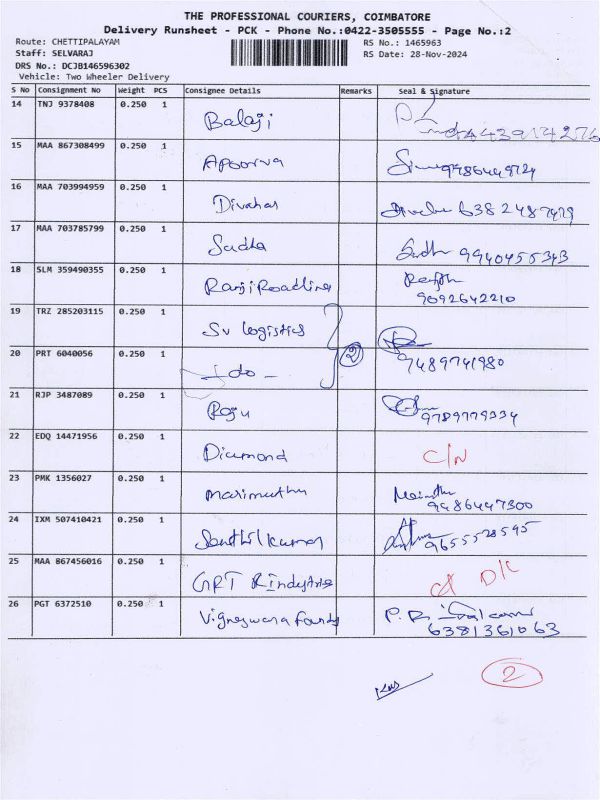 THE PROFESSIONAL COURIERS, COIMBATORE
Delivery Runsheet - PCK - Phone No.:0422-3505555 - Page No.:2
Route: CHETTIPALAYAM RS No.: 1465963
Staff: SELVARAJ RS Date: 28-Nov-2024
DRS No.: DCJB146596302
Vehicle: Two Wheeler Delivery
S No Consignment No Weight PCS Consignee Details Remarks Seal & Signature
14 TNJ 9378408 0.250 1 Balaji
15 MAA 867308499 0.250 1 Apoorva
16 MAA 703994959 0.250 1 Divahar
17 MAA 703785799 0.250 1 Sudha 9940455343
18 SLM 359490355 0.250 1 Ranji Roadlines Renjith
9092642210
19 TRZ 285203115 0.250 1 SV logistics
20 PRT 6040056 0.250 1 - do - 2 9489741980
21 RJP 3487089 0.250 1 Raju 9789779334
22 EDQ 14471956 0.250 1 Diamond C/N
23 PMK 1356027 0.250 1 Marimuthu
9486447300
24 IXM 507410421 0.250 1 Senthilkumar 9655528595
25 MAA 867456016 0.250 1 GRT D/L
26 PGT 6372510 0.250 1 Vigneswara P.R
6381361063
2